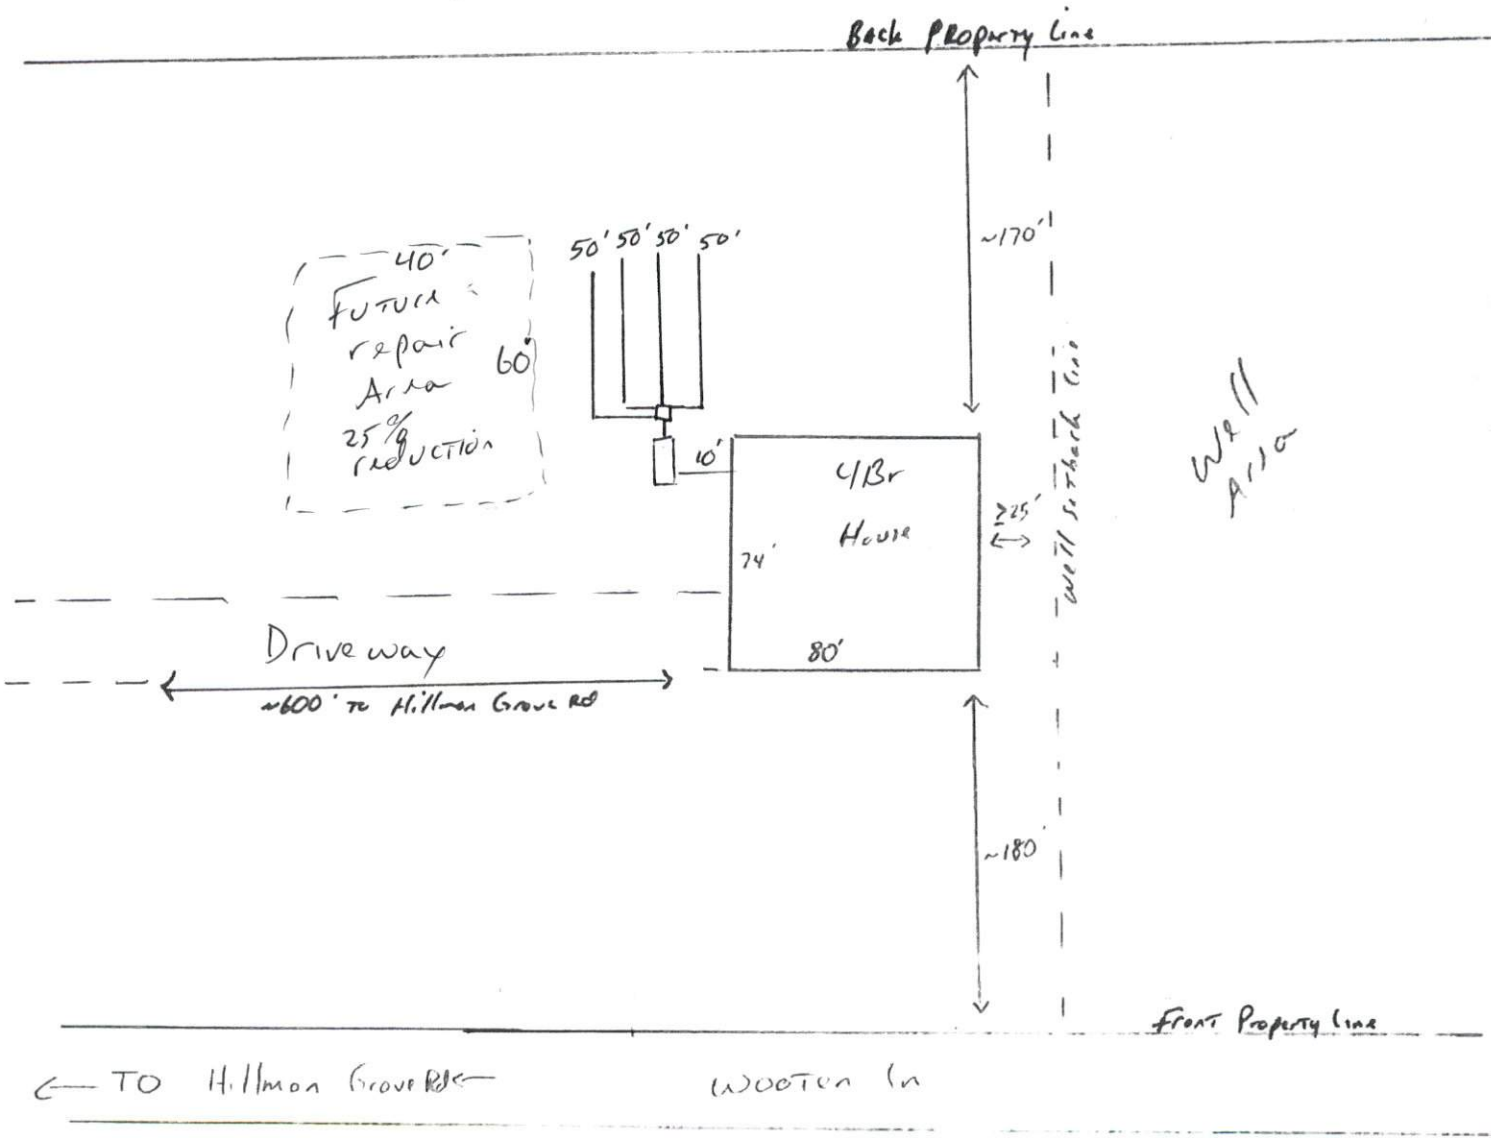 Back Property Line
~170'
50' 50' 50' 50'
40'
Future
repair
Area
25%
reduction
60'
10'
4Br
House
74'
80'
≥25'
Well setback line
Well
Area
Driveway
~600' to Hillman Grove Rd
~180'
Front Property Line
← TO Hillman Grove Rd ←
Wooten Ln